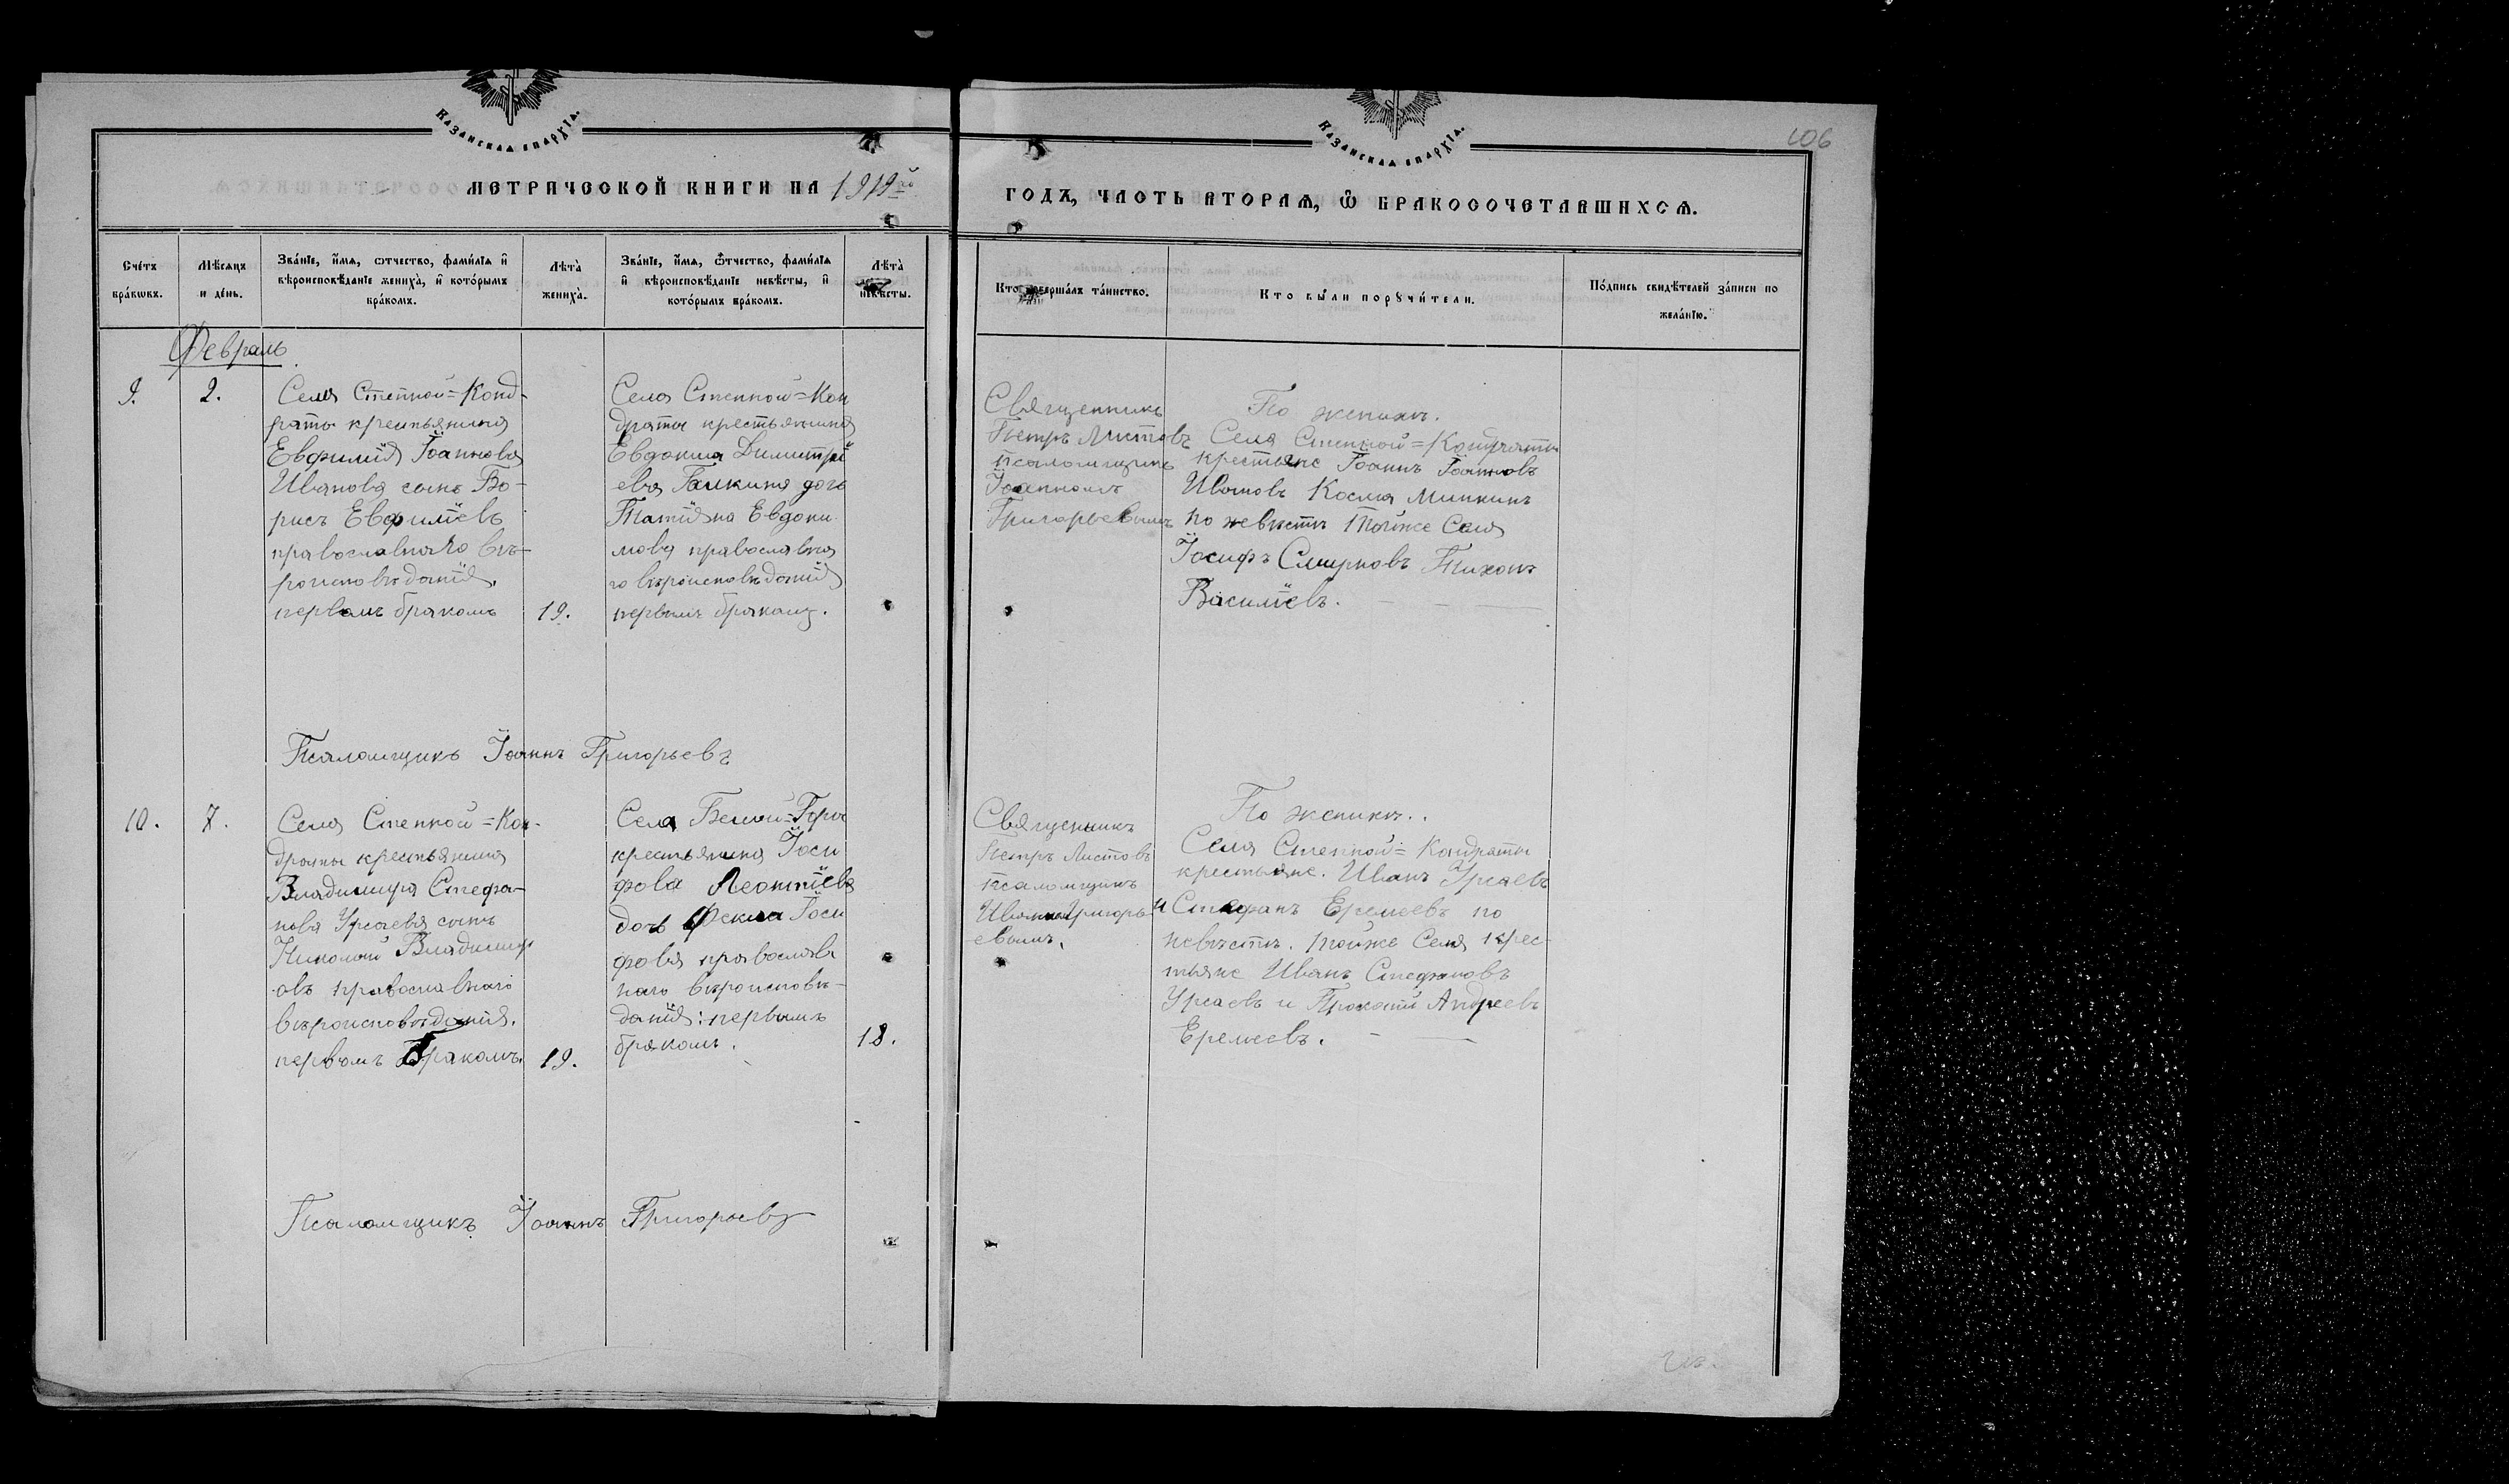 КАЗАНСКАЯ ЕПАРХІА.
КАЗАНСКАЯ ЕПАРХІА.
106
МЕТРИЧЕСКОЙ КНИГИ НА 1919го
ГОДЪ, ЧАСТЬ ВТОРАѦ, Ѽ БРАКОСОЧЕТАВШИХСѦ.
Сче́тъ бра́кωвъ.
Мѣ́сяцъ и де́нь.
Зва́нїе, и҆́мѧ, ѻтчество, фами́лїѧ и҆ вѣроисповѣ́данїе жениха̀, и҆ кото́рымъ бра́комъ.
Лѣта̀ жениха̀.
Зва́нїе, и҆́мѧ, ѻтчество, фами́лїѧ и҆ вѣроисповѣ́данїе невѣ́сты, и҆ кото́рымъ бра́комъ.
Лѣта̀ невѣ́сты.
Кто соверша́лъ та́инство.
Кто бы́ли порꙋчи́тели.
По́дпись свидѣ́телей за́писи по жела́нїю.
Февраль
9.
2.
Села Степной=Конд-
раты крестьянина
Евфимія Іоаннова
Иванова сынъ Бо-
рисъ Евфиміевъ
православнаго вѣ-
роисповѣданія.
первымъ бракомъ
19.
Села Степной=Кон
драты крестьянина
Евдокима Димитрі
ева Галкина дочь
Татіяна Евдоки
мова православна
го вѣроисповѣданія
первымъ бракомъ.
Священникъ
Петръ Листовъ
псаломщикъ
Іоанномъ
Григорьевымъ
По женихѣ.
Села Степной=Кондраты
крестьяне Іоаннъ Іоанновъ
Ивановъ Косма Минкинъ
по невѣстѣ тойже Села
Іосифъ Смирновъ Тихонъ
Василіевъ.
Псаломщикъ Іоаннъ Григорьевъ
10.
7.
Села Степной=Кон-
драты крестьянина
Владимира Стефа-
нова Урсаева сынъ
Николай Владимир
овъ православнаго
вѣроисповѣданія.
первымъ бракомъ.
19.
Села Белой=Горы
крестьянина Іоси
фова Леонтіева
дочь Фекла Іоси
фова православ
наго вѣроисповѣ-
данія: первымъ
бракомъ.
18.
Священникъ
Петръ Листовъ
псаломщикъ
Иваномъ Григорь
евымъ.
По женихѣ..
Села Степной=Кондраты
крестьяне. Иванъ Урсаевъ
и Стефанъ Еремеевъ по
невѣстѣ. тойже Села крес-
тьяне Иванъ Стефановъ
Урсаевъ и Прокопій Андреевъ
Еремеевъ.
Псаломщикъ Іоаннъ Григорьевъ